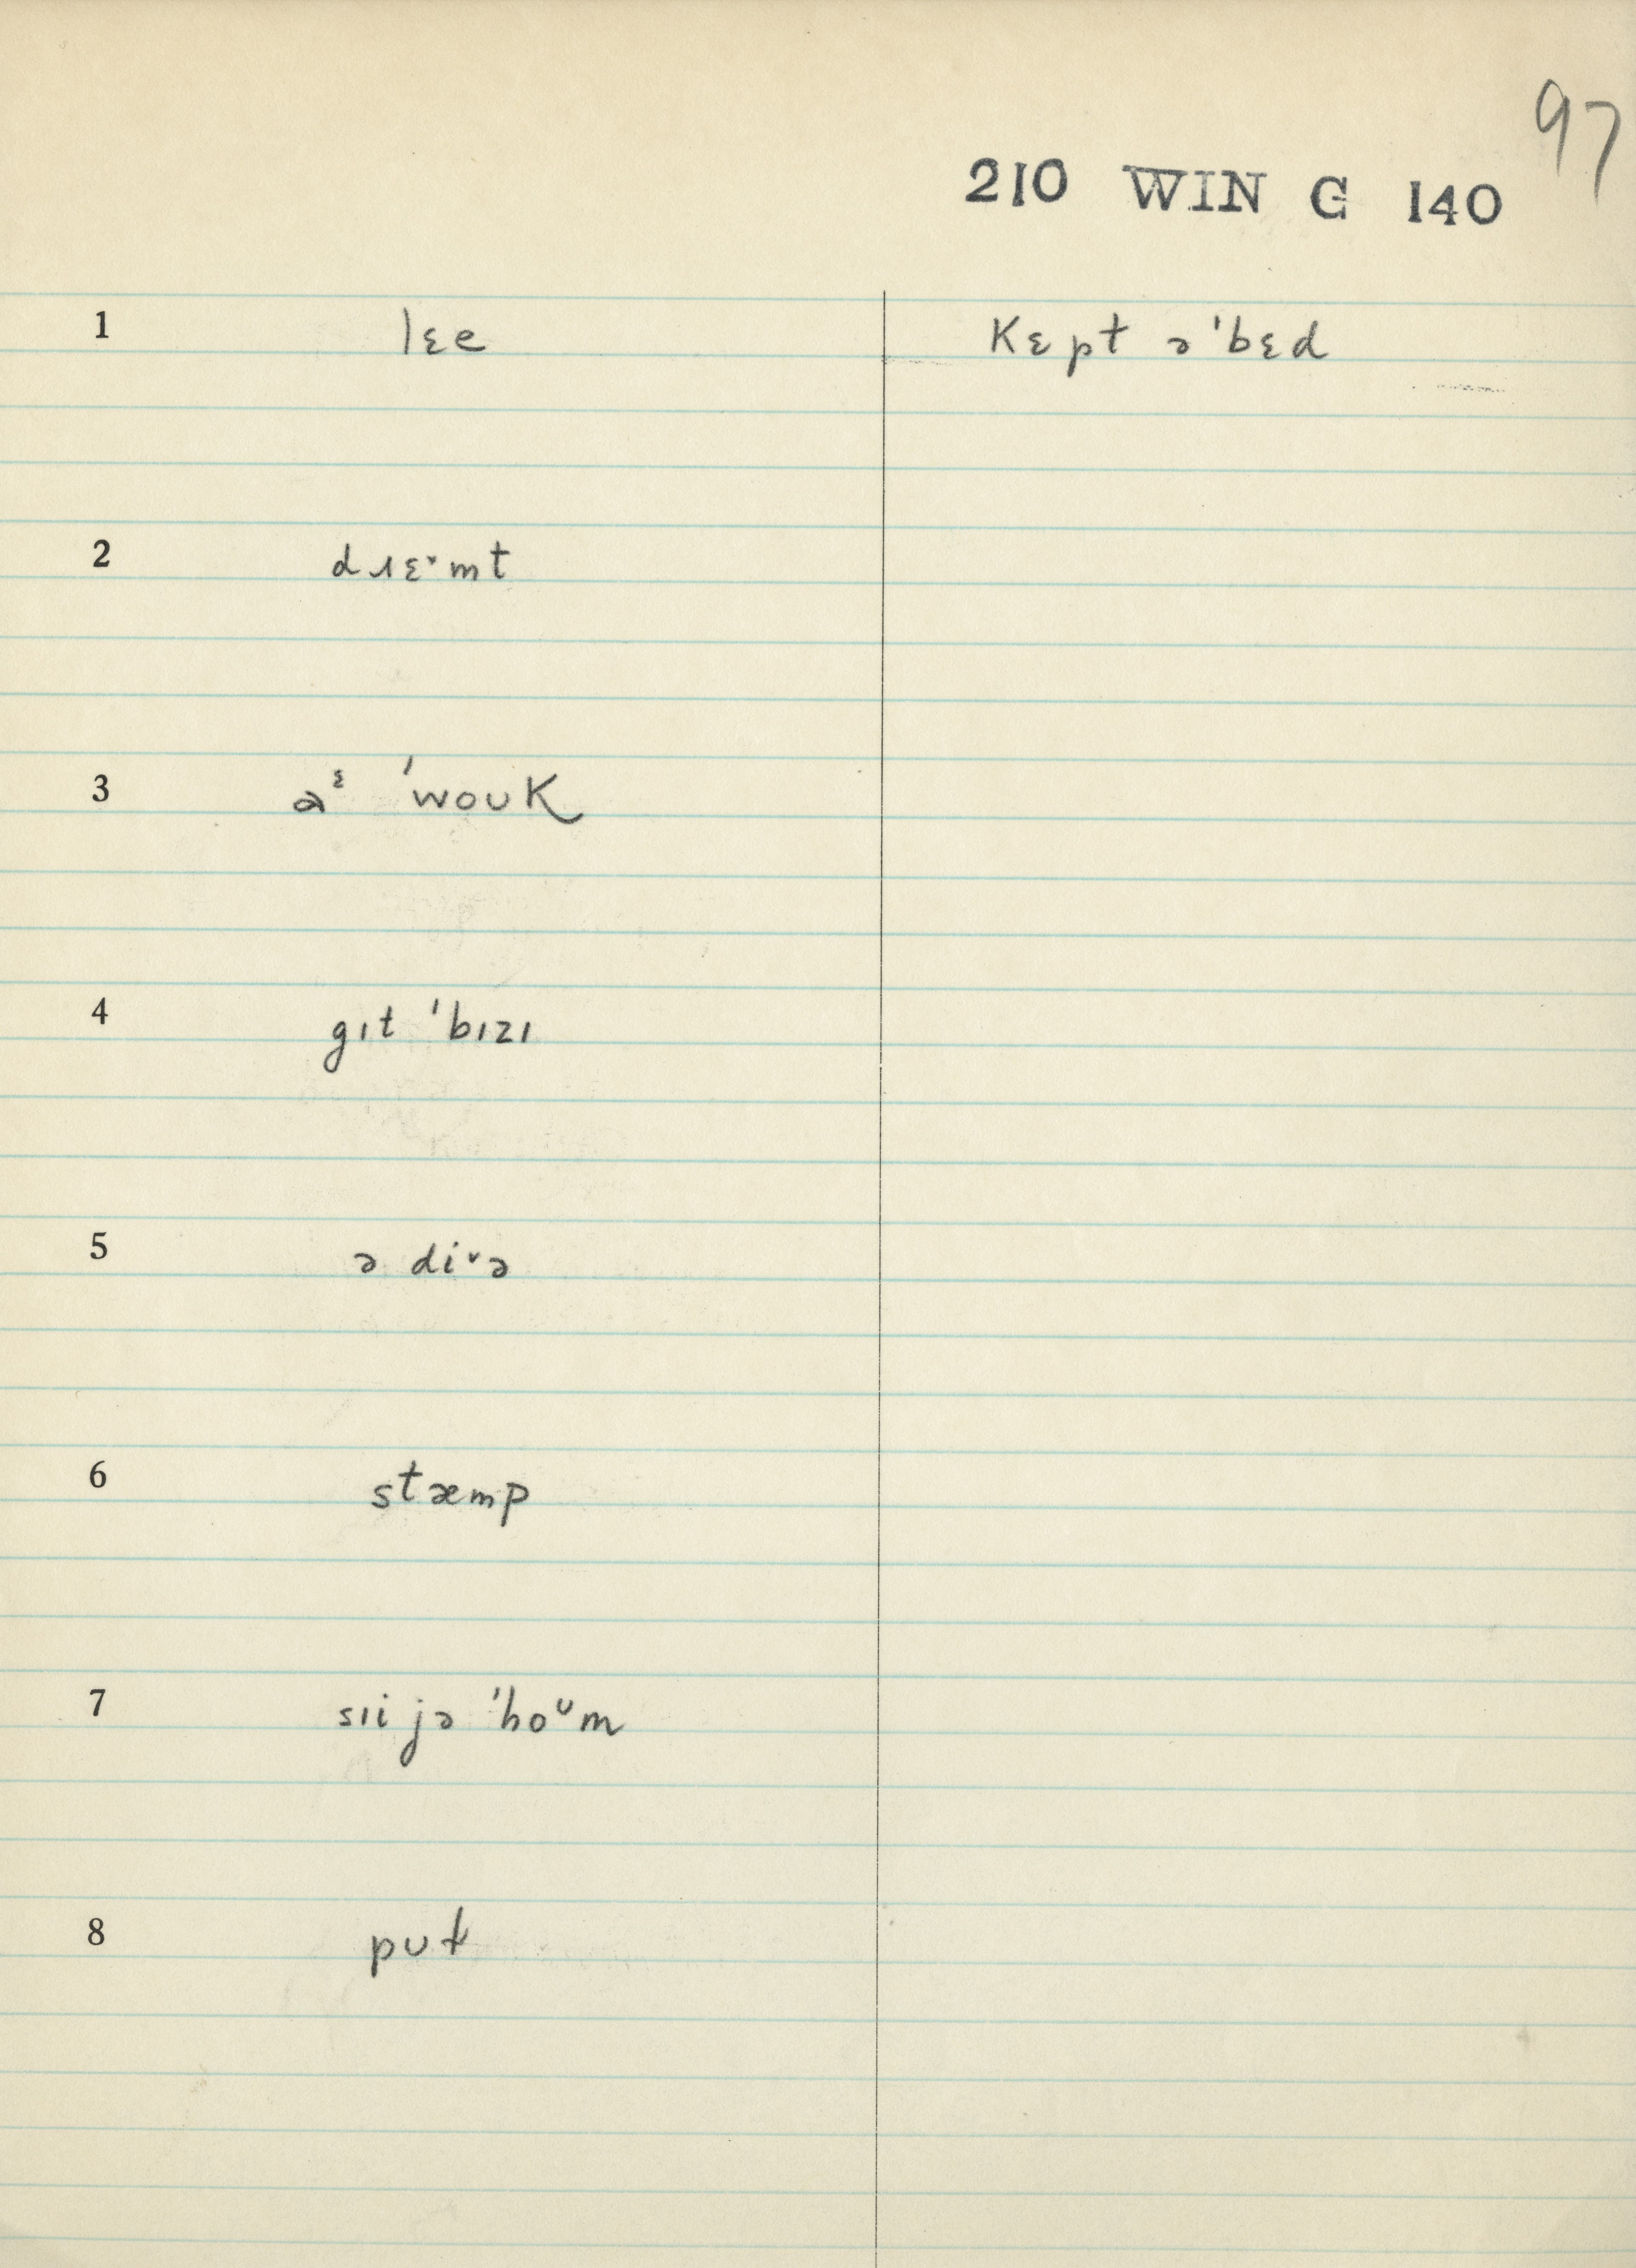 97
210 WIN G 140
1 lɛe kɛpt ə'bɛd
2 dɹɛˑmt
3 aᵋ 'woʊk
4 gɪt 'bɪzɪ
5 ə diˑə
6 stæmp
7 sɪi jə 'hoᶷm
8 pʊt